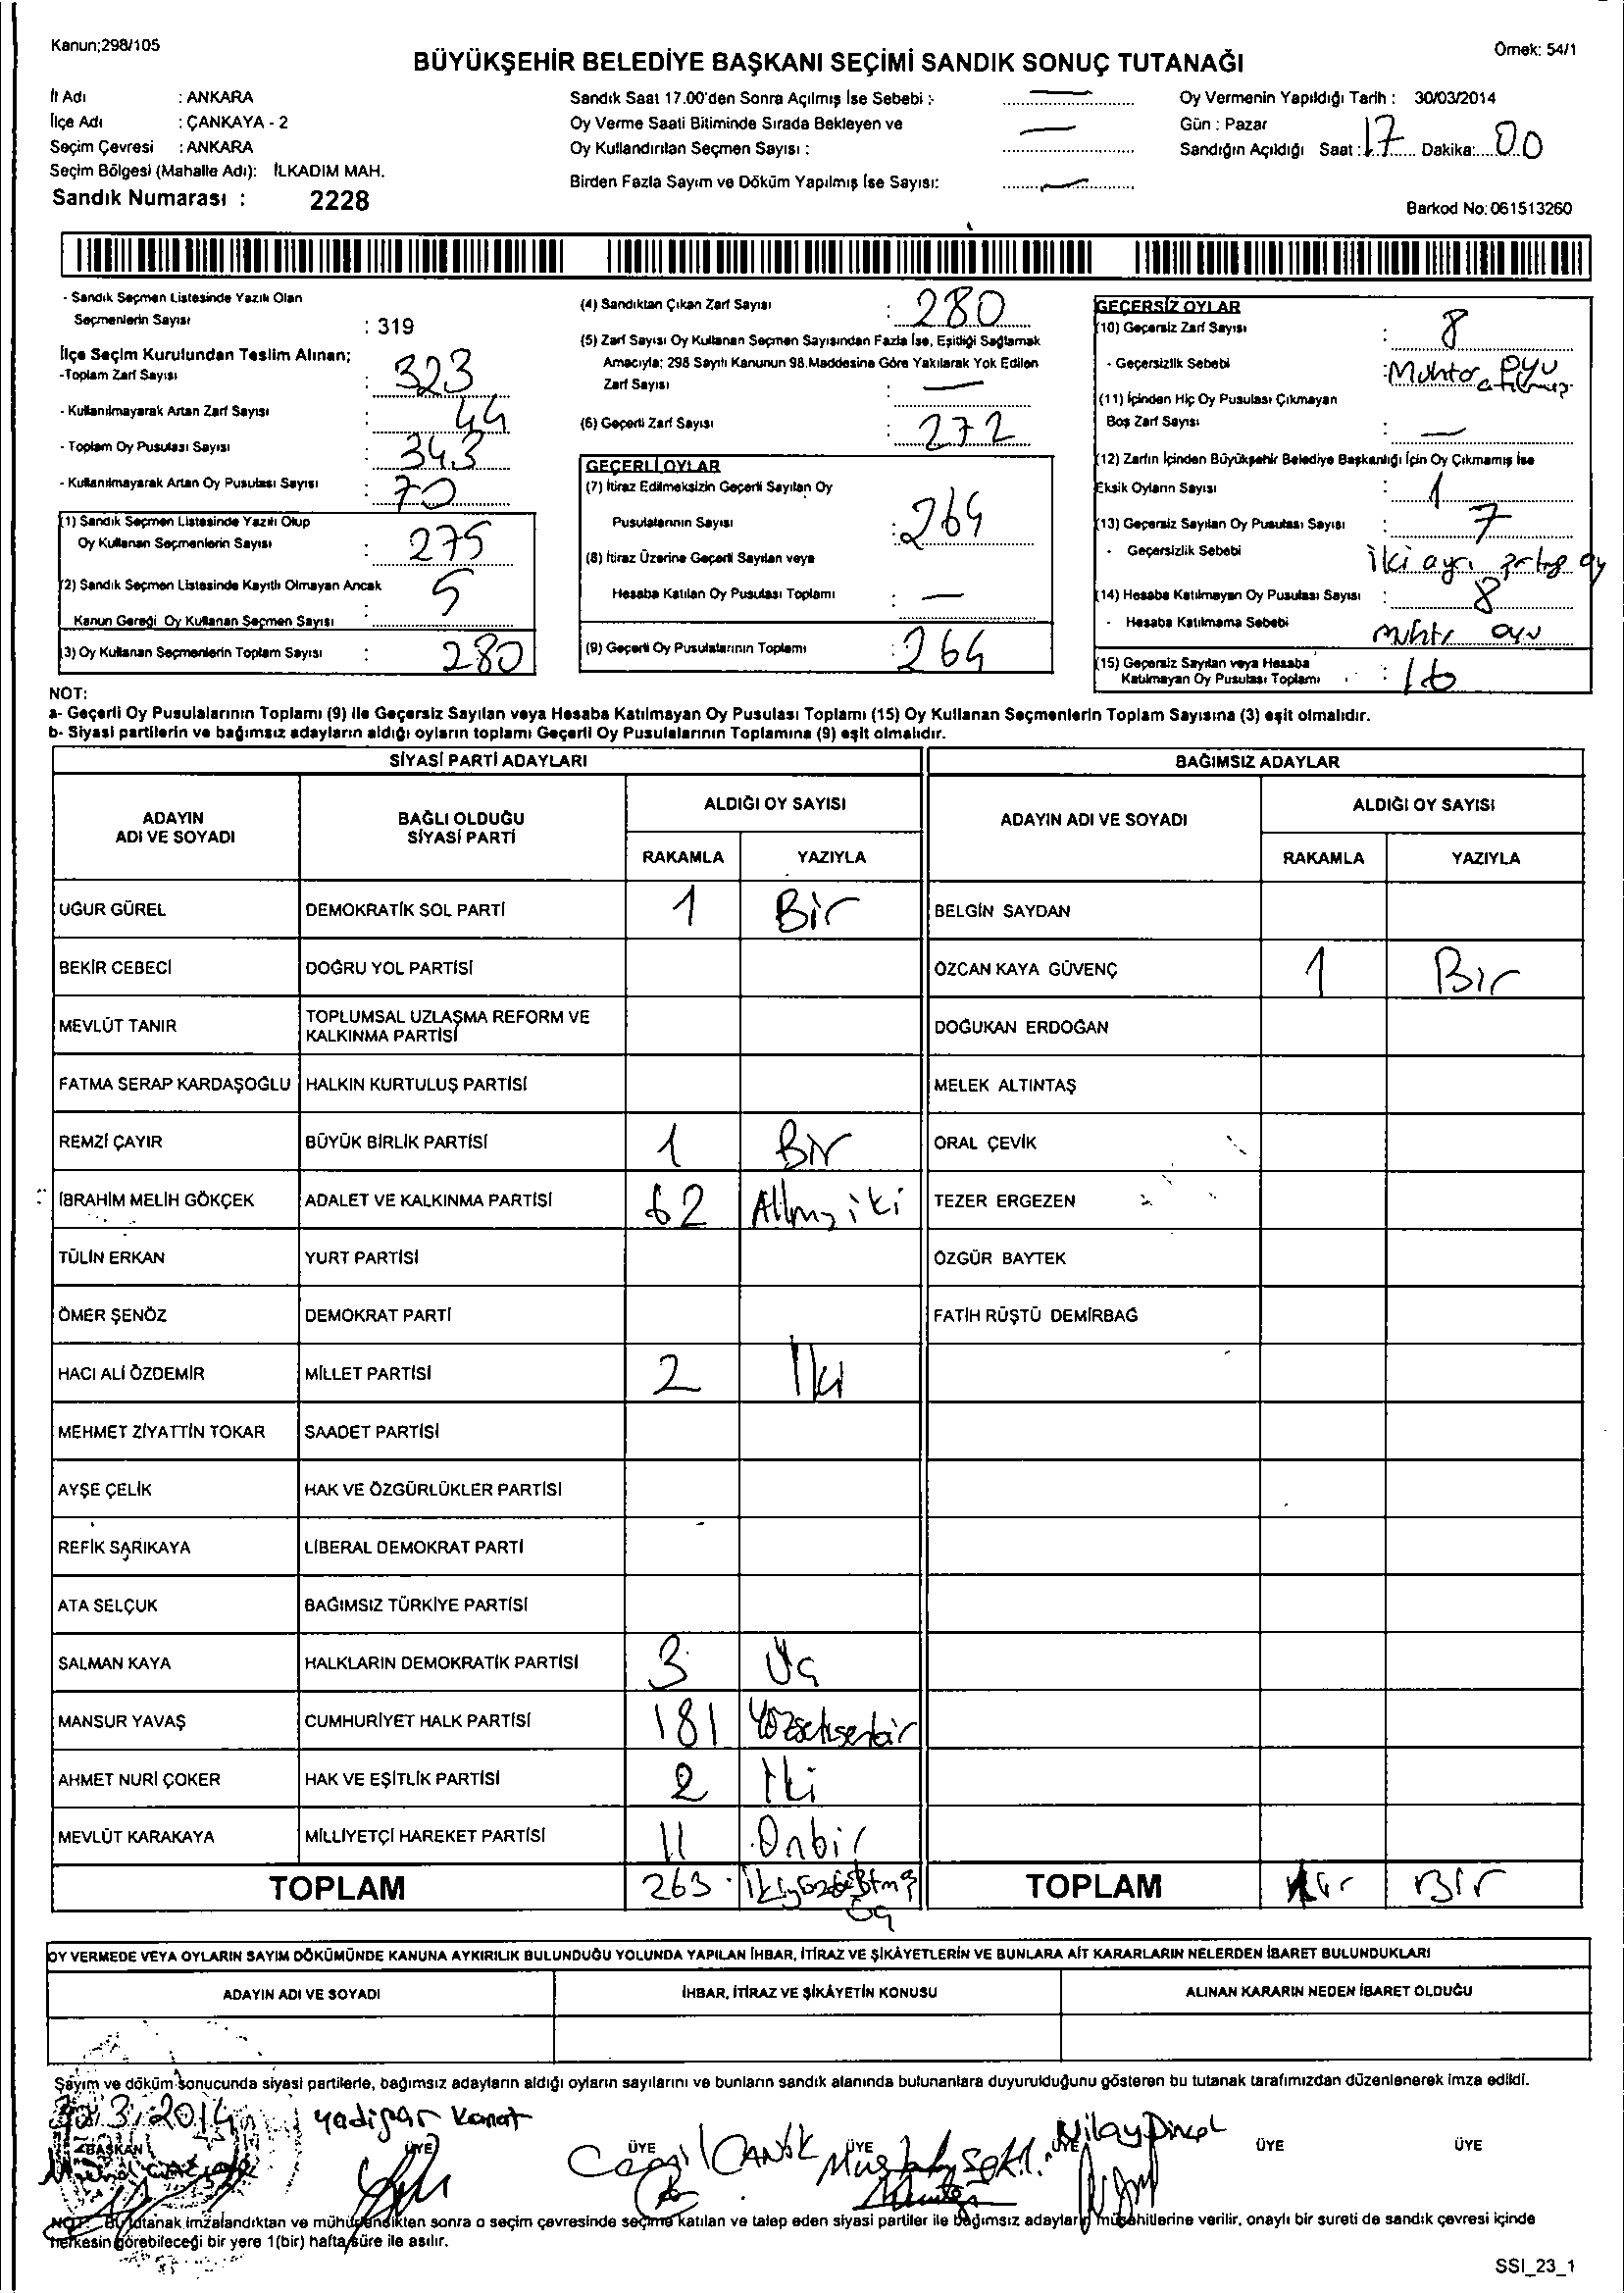 Kanun;298/105
Örnek: 54/1
BÜYÜKŞEHİR BELEDİYE BAŞKANI SEÇİMİ SANDIK SONUÇ TUTANAĞI
İl Adı : ANKARA
İlçe Adı : ÇANKAYA - 2
Seçim Çevresi : ANKARA
Seçim Bölgesi (Mahalle Adı): İLKADIM MAH.
Sandık Numarası : 2228
Sandık Saat 17.00'den Sonra Açılmış İse Sebebi :-
Oy Verme Saati Bitiminde Sırada Bekleyen ve
Oy Kullandırılan Seçmen Sayısı : —
Birden Fazla Sayım ve Döküm Yapılmış İse Sayısı: —
Oy Vermenin Yapıldığı Tarih : 30/03/2014
Gün : Pazar
Sandığın Açıldığı Saat : 17 Dakika: 00
Barkod No: 061513260
- Sandık Seçmen Listesinde Yazılı Olan
Seçmenlerin Sayısı : 319
İlçe Seçim Kurulundan Teslim Alınan;
-Toplam Zarf Sayısı : 323
- Kullanılmayarak Artan Zarf Sayısı : 44
- Toplam Oy Pusulası Sayısı : 343
- Kullanılmayarak Artan Oy Pusulası Sayısı : 70
(1) Sandık Seçmen Listesinde Yazılı Olup
Oy Kullanan Seçmenlerin Sayısı : 275
(2) Sandık Seçmen Listesinde Kayıtlı Olmayan Ancak
Kanun Gereği Oy Kullanan Seçmen Sayısı : 5
(3) Oy Kullanan Seçmenlerin Toplam Sayısı : 280
(4) Sandıktan Çıkan Zarf Sayısı : 280
(5) Zarf Sayısı Oy Kullanan Seçmen Sayısından Fazla İse, Eşitliği Sağlamak
Amacıyla; 298 Sayılı Kanunun 98.Maddesine Göre Yakılarak Yok Edilen
Zarf Sayısı : —
(6) Geçerli Zarf Sayısı : 272
GEÇERLİ OYLAR
(7) İtiraz Edilmeksizin Geçerli Sayılan Oy
Pusulalarının Sayısı : 264
(8) İtiraz Üzerine Geçerli Sayılan veya
Hesaba Katılan Oy Pusulası Toplamı : —
(9) Geçerli Oy Pusulalarının Toplamı : 264
GEÇERSİZ OYLAR
(10) Geçersiz Zarf Sayısı : 8
- Geçersizlik Sebebi : Muhtar oyu atılmış
(11) İçinden Hiç Oy Pusulası Çıkmayan
Boş Zarf Sayısı : —
(12) Zarfın İçinden Büyükşehir Belediye Başkanlığı İçin Oy Çıkmamış İse
Eksik Oyların Sayısı : 1
(13) Geçersiz Sayılan Oy Pusulası Sayısı : 7
- Geçersizlik Sebebi iki ayrı oy
(14) Hesaba Katılmayan Oy Pusulası Sayısı : 8
- Hesaba Katılmama Sebebi muhtr oyu
(15) Geçersiz Sayılan veya Hesaba
Katılmayan Oy Pusulası Toplamı : 16
NOT:
a- Geçerli Oy Pusulalarının Toplamı (9) ile Geçersiz Sayılan veya Hesaba Katılmayan Oy Pusulası Toplamı (15) Oy Kullanan Seçmenlerin Toplam Sayısına (3) eşit olmalıdır.
b- Siyasi partilerin ve bağımsız adayların aldığı oyların toplamı Geçerli Oy Pusulalarının Toplamına (9) eşit olmalıdır.
SİYASİ PARTİ ADAYLARI
BAĞIMSIZ ADAYLAR
ADAYIN ADI VE SOYADI
BAĞLI OLDUĞU SİYASİ PARTİ
ALDIĞI OY SAYISI
RAKAMLA YAZIYLA
ADAYIN ADI VE SOYADI
ALDIĞI OY SAYISI
RAKAMLA YAZIYLA
UĞUR GÜREL DEMOKRATİK SOL PARTİ 1 Bir BELGİN SAYDAN
BEKİR CEBECİ DOĞRU YOL PARTİSİ ÖZCAN KAYA GÜVENÇ 1 Bir
MEVLÜT TANIR TOPLUMSAL UZLAŞMA REFORM VE KALKINMA PARTİSİ DOĞUKAN ERDOĞAN
FATMA SERAP KARDAŞOĞLU HALKIN KURTULUŞ PARTİSİ MELEK ALTINTAŞ
REMZİ ÇAYIR BÜYÜK BİRLİK PARTİSİ 1 Bir ORAL ÇEVİK
İBRAHİM MELİH GÖKÇEK ADALET VE KALKINMA PARTİSİ 62 Altmış iki TEZER ERGEZEN
TÜLİN ERKAN YURT PARTİSİ ÖZGÜR BAYTEK
ÖMER ŞENÖZ DEMOKRAT PARTİ FATİH RÜŞTÜ DEMİRBAĞ
HACI ALİ ÖZDEMİR MİLLET PARTİSİ 2 İki
MEHMET ZİYATTİN TOKAR SAADET PARTİSİ
AYŞE ÇELİK HAK VE ÖZGÜRLÜKLER PARTİSİ
REFİK SARIKAYA LİBERAL DEMOKRAT PARTİ
ATA SELÇUK BAĞIMSIZ TÜRKİYE PARTİSİ
SALMAN KAYA HALKLARIN DEMOKRATİK PARTİSİ 3 Üç
MANSUR YAVAŞ CUMHURİYET HALK PARTİSİ 181 Yüzseksenbir
AHMET NURİ ÇOKER HAK VE EŞİTLİK PARTİSİ 2 İki
MEVLÜT KARAKAYA MİLLİYETÇİ HAREKET PARTİSİ 11 Onbir
TOPLAM 263 TOPLAM Bir
OY VERMEDE VEYA OYLARIN SAYIM DÖKÜMÜNDE KANUNA AYKIRILIK BULUNDUĞU YOLUNDA YAPILAN İHBAR, İTİRAZ VE ŞİKÂYETLERİN VE BUNLARA AİT KARARLARIN NELERDEN İBARET BULUNDUKLARI
ADAYIN ADI VE SOYADI İHBAR, İTİRAZ VE ŞİKÂYETİN KONUSU ALINAN KARARIN NEDEN İBARET OLDUĞU
Sayım ve döküm sonucunda siyasi partilerle, bağımsız adayların aldığı oyların sayılarını ve bunların sandık alanında bulunanlara duyurulduğunu gösteren bu tutanak tarafımızdan düzenlenerek imza edildi.
30/3/2014 Yadigar Kanat Nilay Dinçel
BAŞKAN ÜYE ÜYE ÜYE ÜYE ÜYE ÜYE
NOT: Bu tutanak imzalandıktan ve mühürlendikten sonra o seçim çevresinde seçime katılan ve talep eden siyasi partiler ile bağımsız adayların müşahitlerine verilir, onaylı bir sureti de sandık çevresi içinde
herkesin görebileceği bir yere 1(bir) hafta süre ile asılır.
SSI_23_1